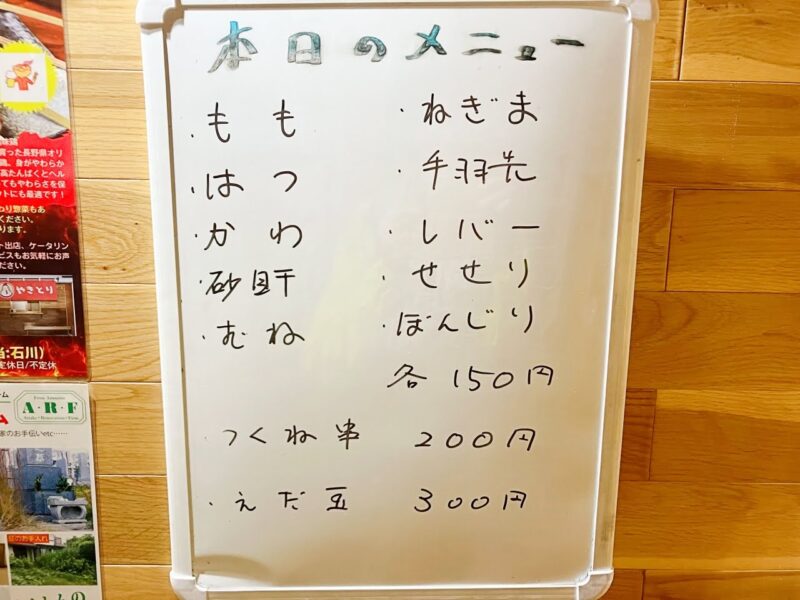 本日のメニュー
・もも ・ねぎま
・はつ ・手羽先
・かわ ・レバー
・砂肝 ・せせり
・むね ・ぼんじり
各150円
・つくね串 200円
・えだ豆 300円
育った長野県オリ
鶏、身がやわらか
高たんぱくとヘル
てもやわらさを保
ットにも最適です！
わり惣菜もあ
ください。
ります。
ト出店、ケータリン
ビスもお気軽にお声
ださい。
やきとり
当:石川）
定休日/不定休
A・R・F
家のお手伝いetc……
庭のお手入れ